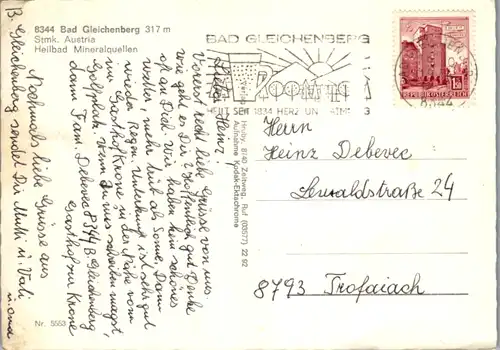 8344 Bad Gleichenberg 317 m
Stmk. Austria
Heilbad Mineralquellen
BAD GLEICHENBERG
HEILT SEIT 1834 HERZ UN
8344
REPUBLIK ÖSTERREICH
Lieber Heinz!
Vorerst recht liebe Grüsse von uns.
Wie geht es Dir? Hoffentlich gut. Denke
oft an Dich. Wir haben kein schönes
Wetter, mehr kalt als Sonne. Dann
wieder Regen. Unterkunft ist sehr gut
im Gasthof Krone in der Nähe vom
Golfplatz. Wenn Du uns schreiben magst,
dann Fam. Debevec 8344 B. Gleichenberg
Gasthof zur Krone
Nochmals liebe Grüsse aus
B. Gleichenberg sendet Dir Mutti u. Vati
u. Oma
Hruby, 8740 Zeltweg, Ruf (03577) 22 92
Aufnahme Kodak-Ektachrome
Herrn
Heinz Debevec
Lewaldstraße 24
8793 Trofaiach
Nr. 5553